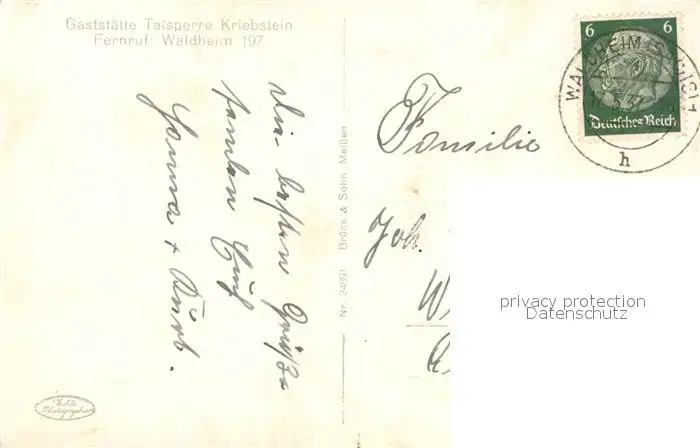 Gaststätte Talsperre Kriebstein
Fernruf: Waldheim 197
Die besten Grüße
senden Euch
Hanna + Kurt.
Nr. 24891 Brück & Sohn Meißen
6 6
Deutsches Reich
WALDHEIM (SACHS)
h
Familie
Joh.
privacy protection
Datenschutz
Echte
Photographie